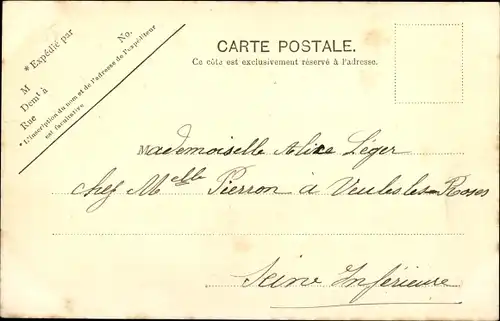 * Expédié par
No.
M
Demt à
Rue
* L'inscription du nom et de l'adresse de l'expéditeur
est facultative
CARTE POSTALE.
Ce côté est exclusivement réservé à l'adresse.
Mademoiselle Alice Léger
chez Melle Pierron à Veules les-Roses
Seine Inférieure